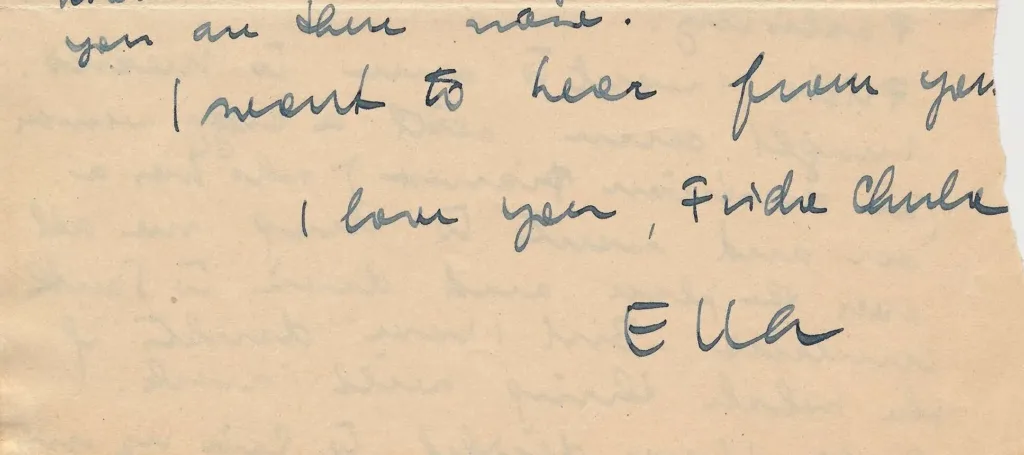 you are there now.
I want to hear from you
I love you, Frida Chula
Ella